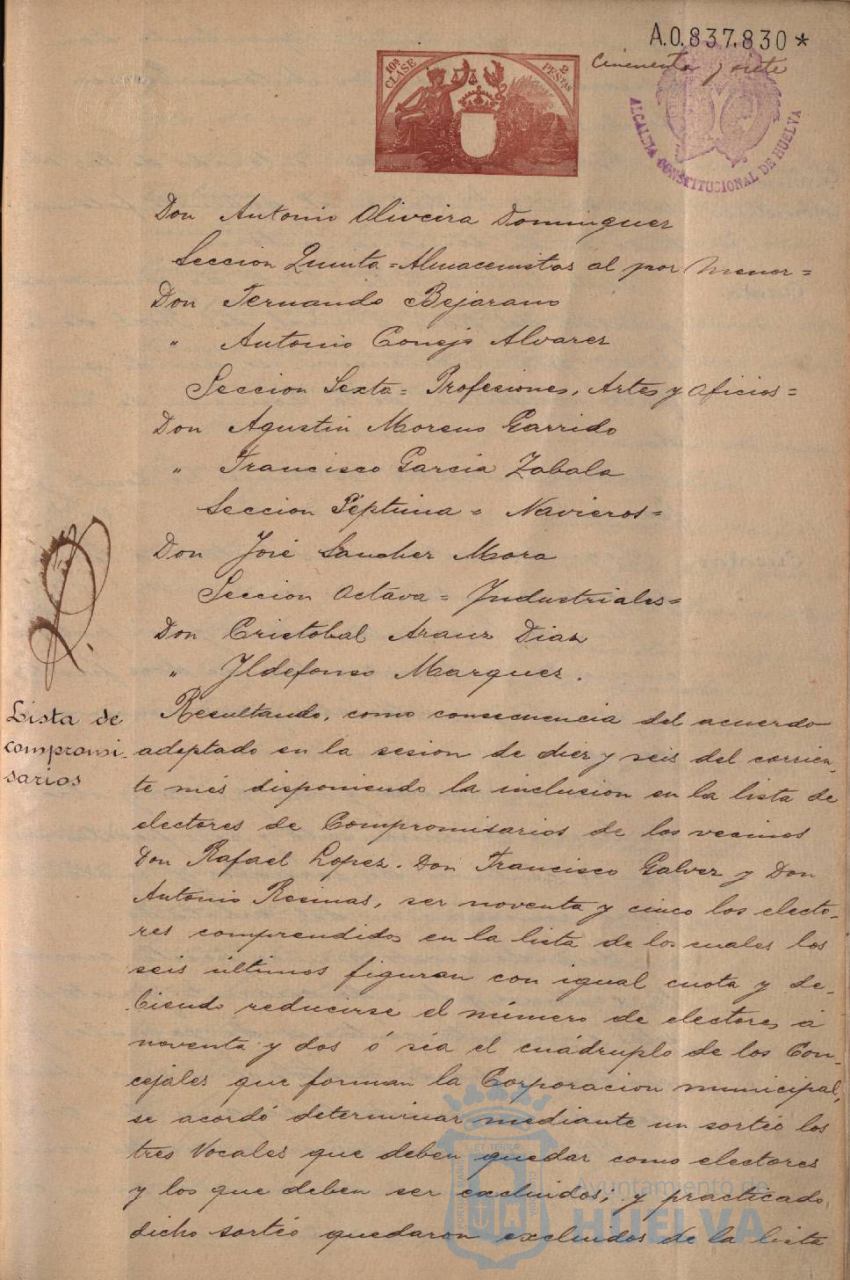 A.0.837.830*
Cincuenta y siete
10ª CLASE
2 PESETAS
ALCALDIA CONSTITUCIONAL DE HUELVA
Don Antonio Oliveira Dominguez
Seccion Quinta = Almacenistas al por Menor =
Don Fernando Bejarano
" Antonio Conejo Alvarez
Seccion Sexta = Profesiones, Artes y Oficios =
Don Agustin Moreno Garrido
" Francisco Garcia Zabala
Seccion Séptima = Navieros =
Don José Sanchez Mora
Seccion Octava = Industriales =
Don Cristobal Arauz Diaz
" Ildefonso Marquez.
Lista de
compromi-
sarios
Resultando, como consecuencia del acuerdo
adoptado en la sesion de diez y seis del corrien-
te mes disponiendo la inclusion en la lista de
electores de Compromisarios de los vecinos
Don Rafael Lopez. Don Francisco Galvez y Don
Antonio Rosinas, ser noventa y cinco los electo-
res comprendidos en la lista de los cuales los
seis últimos figuran con igual cuota y de-
biendo reducirse el número de electores á
noventa y dos ó sea el cuádruplo de los Con-
cejales que forman la Corporacion municipal,
se acordó determinar mediante un sorteo los
tres Vocales que deben quedar como electores
y los que deben ser excluidos; y practicado
dicho sorteo quedaron excluidos de la lista
Ayuntamiento de
HUELVA